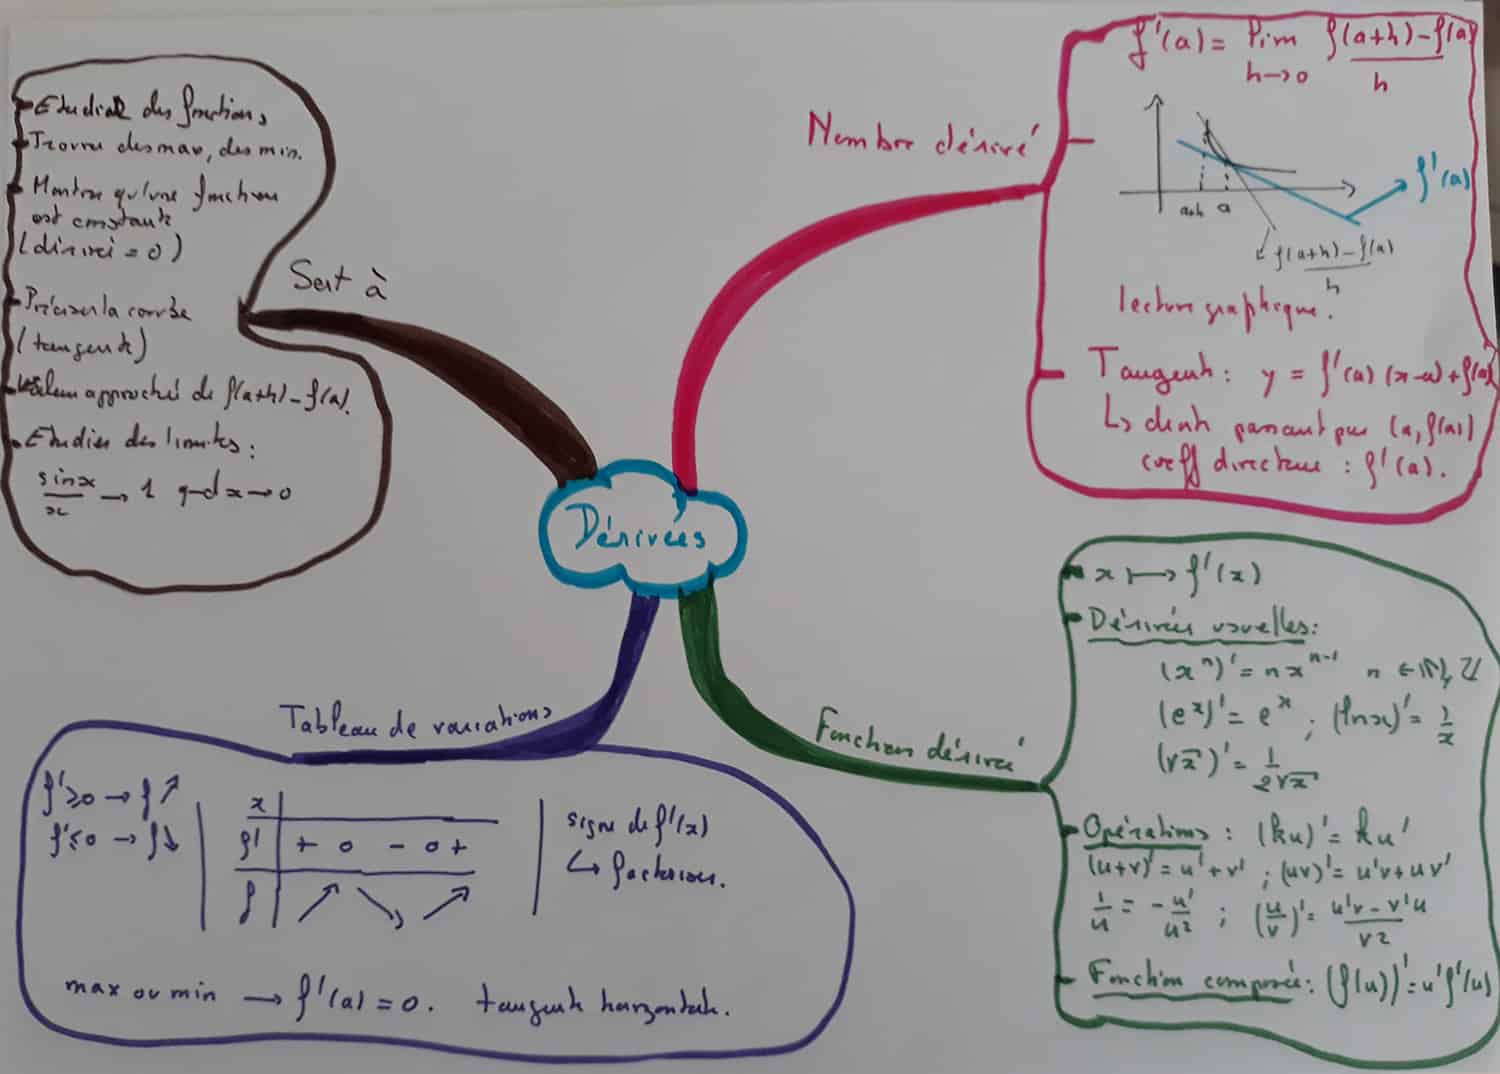 Dérivées
Sert à
- Etudier des fonctions
- Trouver des max, des min.
- Montrer qu'une fonction
est constante
(dérivée = 0)
- Préciser la courbe
(tangente)
- Valeur approchée de f(a+h) - f(a).
- Etudier des limites :
sin x / x → 1 qd x → 0
Nombre dérivé
f'(a) = lim h→0 f(a+h) - f(a) / h
f'(a)
a+h a
f(a+h) - f(a) / h
lecture graphique.
Tangente : y = f'(a) (x-a) + f(a)
↳ droite passant par (a, f(a))
coeff directeur : f'(a).
Tableau de variations
f' ≥ 0 → f ↗
f' ≤ 0 → f ↘
x
f' + 0 - 0 +
f ↗ ↘ ↗
signe de f'(x)
↳ factoriser.
max ou min → f'(a) = 0. tangente horizontale.
Fonction dérivée
x ↦ f'(x)
Dérivées usuelles :
(xⁿ)' = n xⁿ⁻¹ n ∈ ℕ, ℤ
(eˣ)' = eˣ ; (ln x)' = 1/x
(√x)' = 1 / 2√x
Opérations : (ku)' = ku'
(u+v)' = u' + v' ; (uv)' = u'v + uv'
1/u = - u'/u² ; (u/v)' = u'v - v'u / v²
Fonction composée : (f(u))' = u' f'(u)